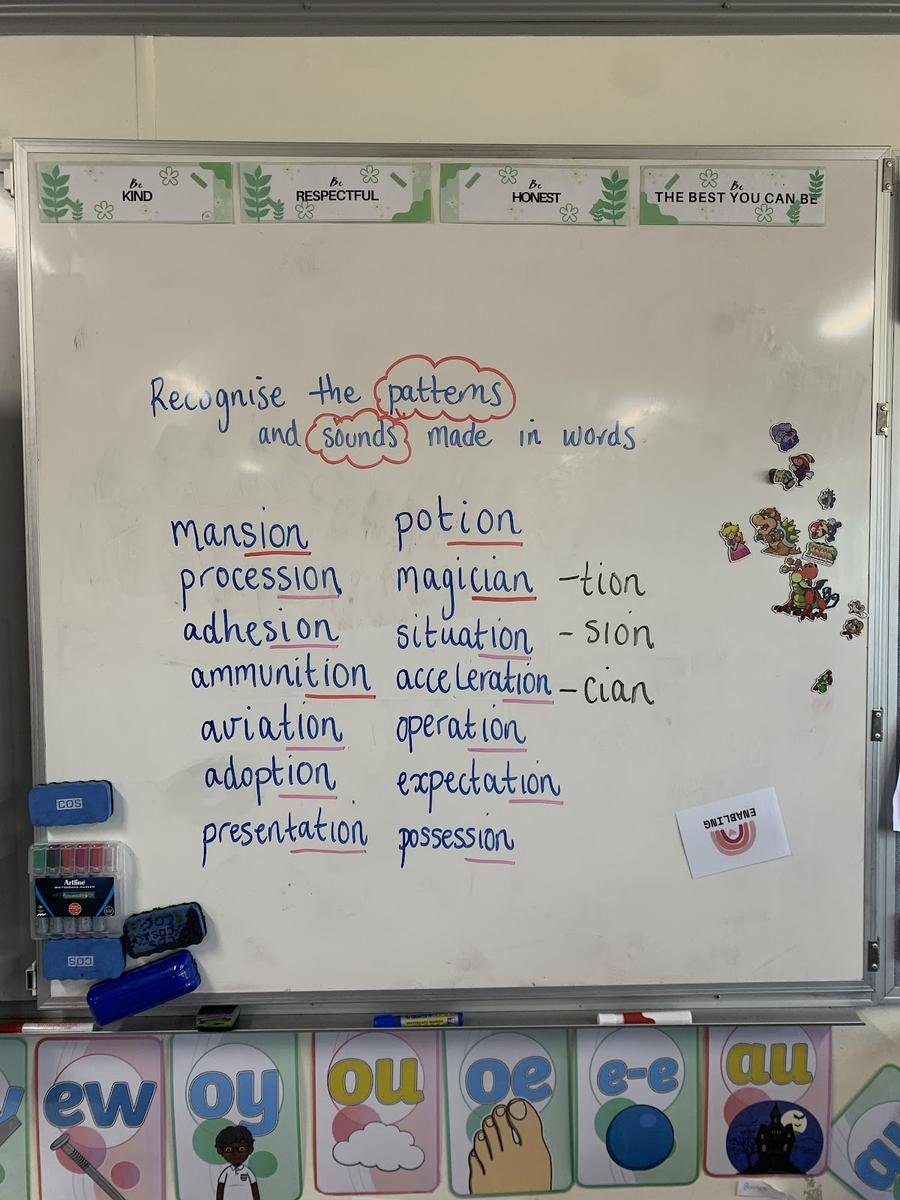 Be
KIND
Be
RESPECTFUL
Be
HONEST
Be
THE BEST YOU CAN BE
Recognise the patterns
and sounds made in words
mansion
procession
adhesion
ammunition
aviation
adoption
presentation
potion
magician
situation
acceleration
operation
expectation
possession
-tion
-sion
-cian
ENABLING
COS
Artline
WHITEBOARD MARKER
COS
ew
oy
ou
oe
e-e
au